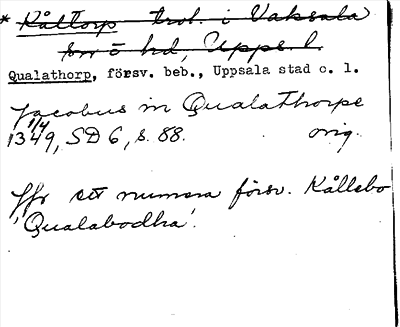 * Kåltorp trol. i Vaksala
sn o hd, Upps. l.
Qualathorp, försv. beb., Uppsala stad o. l.
Jacobus in Qualathorpe
1349 1/4, SD 6, s. 88. orig.
Jfr ett numera försv. Kållebo
'Qualabodha'.